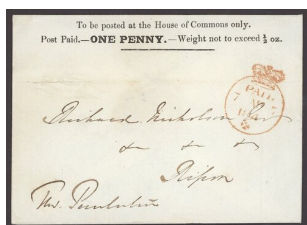 To be posted at the House of Commons only.
Post Paid.—ONE PENNY.—Weight not to exceed ½ oz.
PAID
Richard Nicholson
Ripon